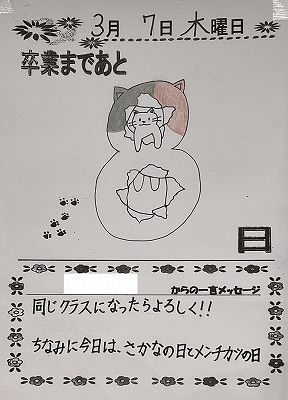 3月 7日 木曜日
卒業まであと
8
日
からの一言メッセージ
同じクラスになったらよろしく!!
ちなみに今日は、さかなの日とメンチカツの日